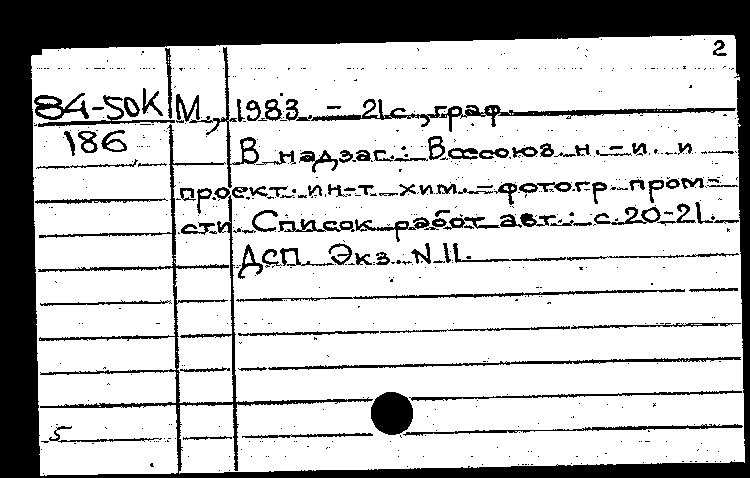 2
84-50К М., 1983. - 21 с., граф.
186
В надзаг.: Всесоюз. н.-и. и
проект. ин-т хим.-фотогр. пром-
сти. Список работ авт.: с. 20-21.
ДСП. Экз. N 11.
5